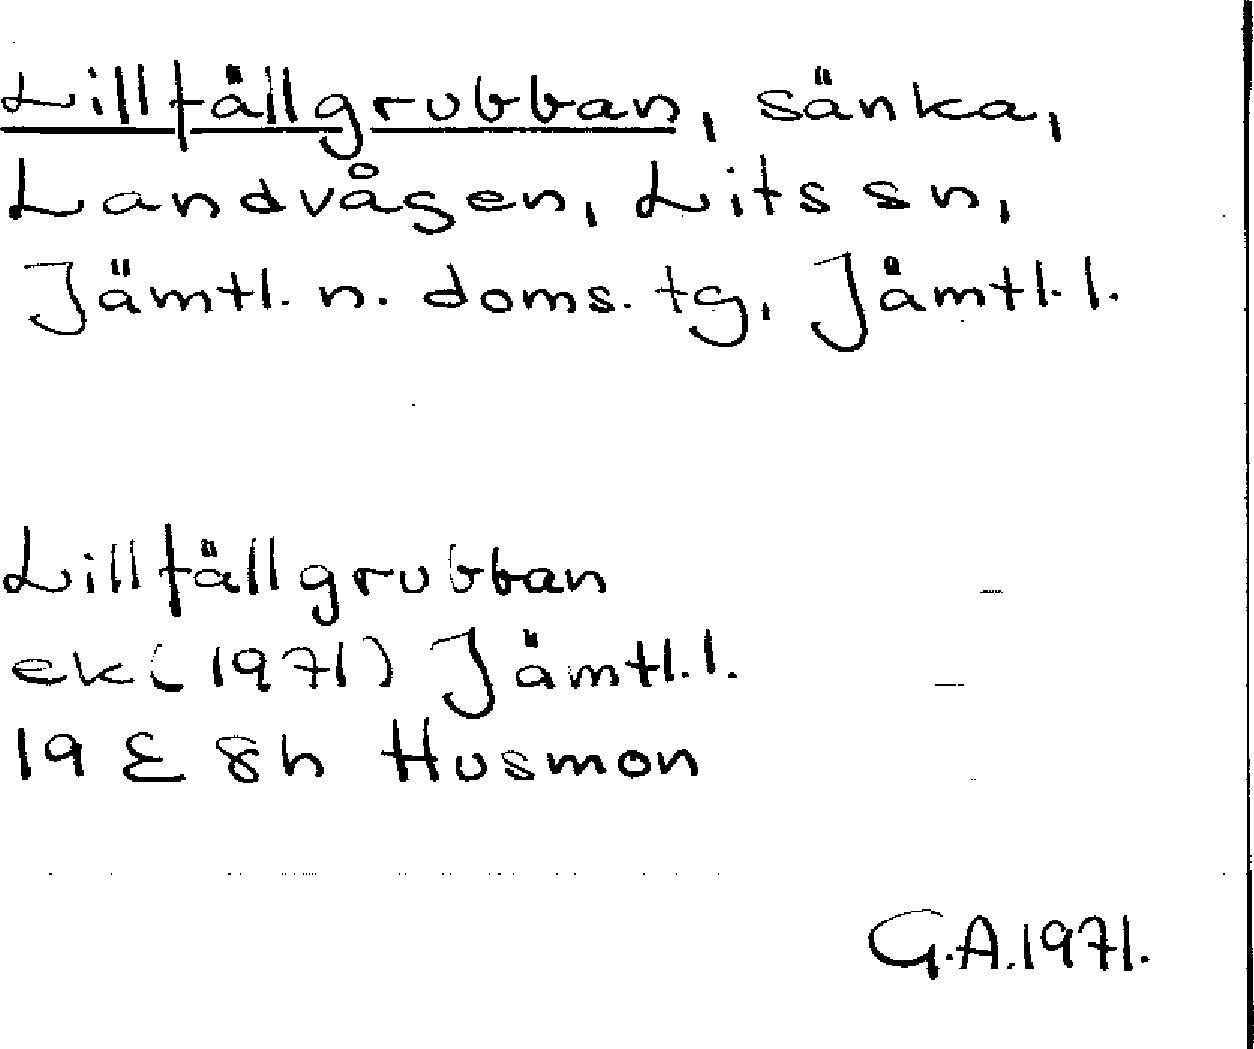 Lillfällgrubban, sänka,
Landvågen, Lits sn,
Jämtl. n. doms. tg, Jämtl. l.
Lillfällgrubban
ek (1971) Jämtl. l.
19 E 8h Husmon
G.A. 1971.